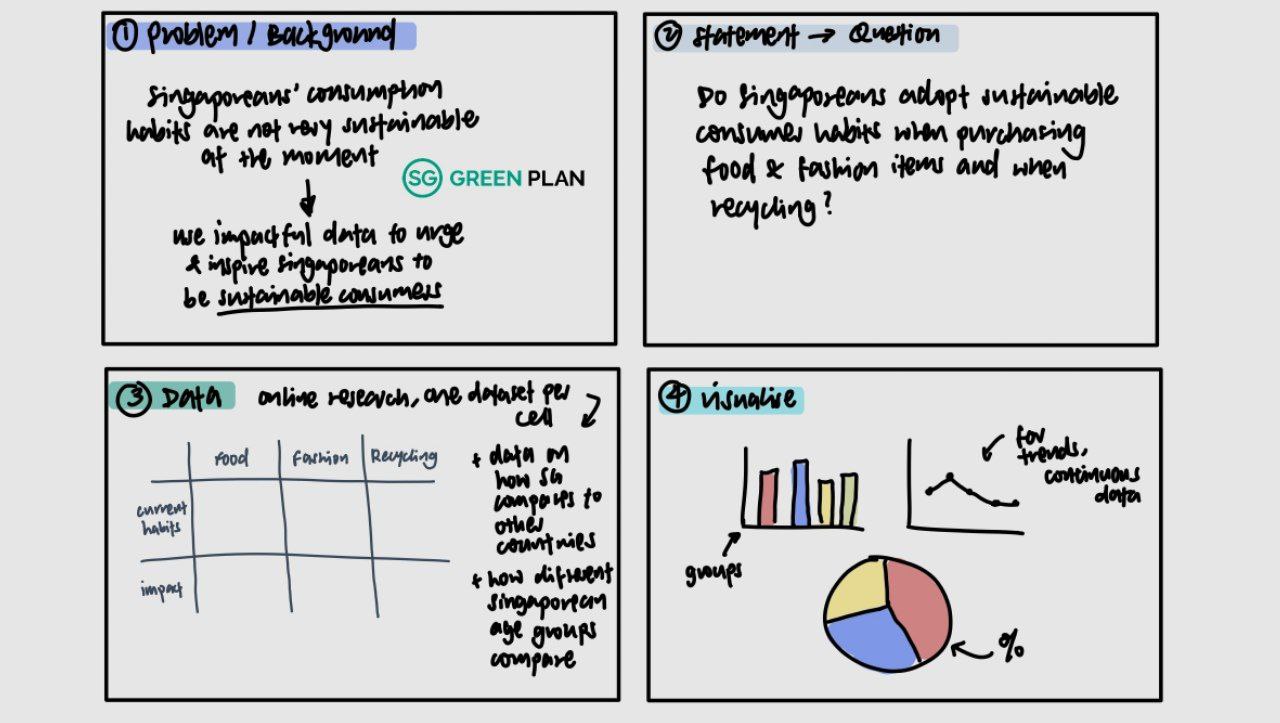 ① Problem / Background
Singaporeans' consumption
habits are not very sustainable
at the moment
SG GREEN PLAN
use impactful data to urge
& inspire singaporeans to
be sustainable consumers
② Statement → Question
Do Singaporeans adopt sustainable
consumer habits when purchasing
food & fashion items and when
recycling?
③ Data
online research, one dataset per
cell
Food Fashion Recycling
current
habits
impact
+ data on
how SG
compares to
other
countries
+ how different
singaporean
age groups
compare
④ visualise
groups
for
trends,
continuous
data
%